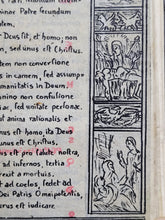 minor Patre secundum
Deus sit, et homo, non
sed unus est Christus.
non conversione
in carnem, sed assump
manitatis in Deum.
non confusione
sed unitate personæ.
anima rationalis et
est homo, ita Deus
unus est Christus.
us est pro salute
ad infernos, tertia
a mortuis.
ad cœlos sedet ad
Dei Patris Omnipotentis,
turus est judicare